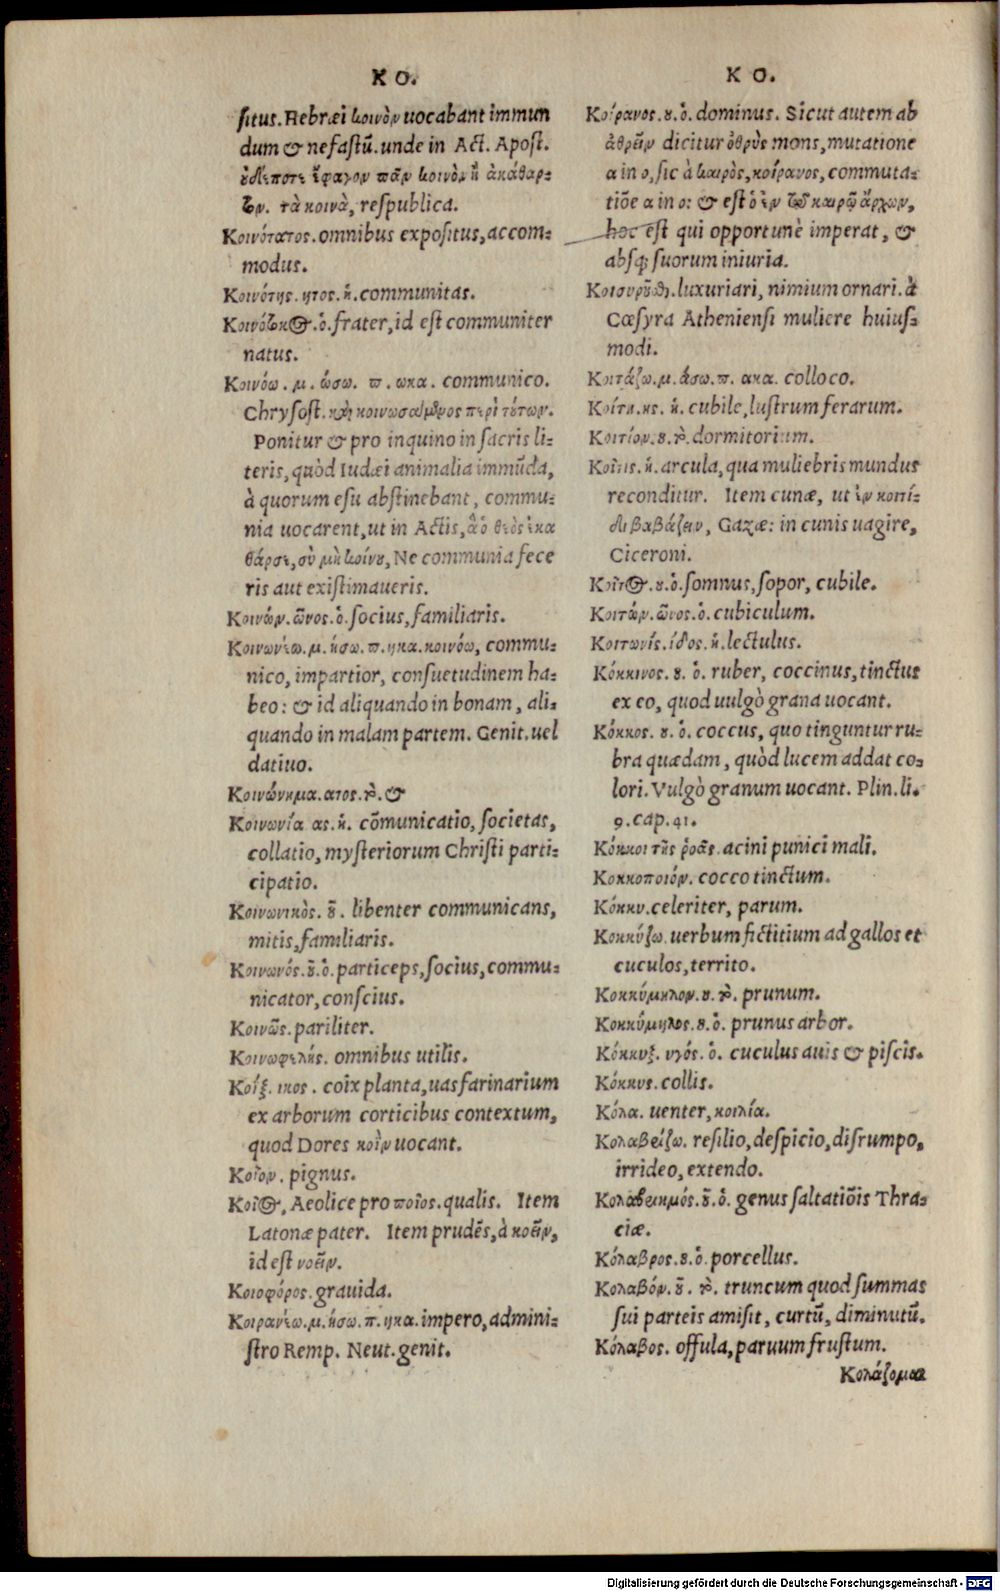 KO.
situs. Hebræi κοινὸν uocabant immun
dum & nefastū. unde in Act. Apost.
οὐδέποτε ἔφαγον πᾶν κοινὸν ἢ ἀκάθαρ-
τον. τὰ κοινὰ, respublica.
Κοινότατος. omnibus expositus, accom-
modus.
Κοινότης. ητος. ἡ. communitas.
Κοινότοκος. ὁ. frater, id est communiter
natus.
Κοινόω. μ. ώσω. π. ωκα. communico.
Chrysost. καὶ κοινωσαμένος περὶ τούτων.
Ponitur & pro inquino in sacris li-
teris, quòd Iudæi animalia immūda,
à quorum esu abstinebant, commu-
nia uocarent, ut in Actis, ἃ ὁ θεὸς ἐκα
θάρσε, σὺ μὴ κοίνου, Ne communia fece
ris aut existimaueris.
Κοινών. ῶνος. ὁ. socius, familiaris.
Κοινωνέω. μ. ήσω. π. ηκα. κοινόω, commu-
nico, impartior, consuetudinem ha-
beo: & id aliquando in bonam, ali-
quando in malam partem. Genit. uel
datiuo.
Κοινώνημα. ατος. τὸ. &
Κοινωνία ας. ἡ. cōmunicatio, societas,
collatio, mysteriorum Christi parti-
cipatio.
Κοινωνικὸς. οῦ. libenter communicans,
mitis, familiaris.
Κοινωνός. οῦ. ὁ. particeps, socius, commu-
nicator, conscius.
Κοινῶς. pariliter.
Κοινωφελής. omnibus utilis.
Κοίξ. ικος. coix planta, uas farinarium
ex arborum corticibus contextum,
quod Dores κοῒν uocant.
Κοῖον. pignus.
Κοῖος, Aeolice pro ποῖος. qualis. Item
Latonæ pater. Item prudēs, à κοεῖν,
id est νοεῖν.
Κοιοφόρος. grauida.
Κοιρανέω. μ. ήσω. π. ηκα. impero, admini-
stro Remp. Neut. genit.
KO.
Κοίρανος. ου. ὁ. dominus. Sicut autem ab
ἀθρεῖν dicitur ὀθρὺς mons, mutatione
α in ο, sic à καιρὸς, κοίρανος, commuta-
tiōe α in ο: & est ὁ ἐν τῷ καιρῷ ἄρχων,
hoc est qui opportunè imperat, &
absq; suorum iniuria.
Κοισυροῦσθαι. luxuriari, nimium ornari. à
Cœsyra Atheniensi muliere huius-
modi.
Κοιτάζω. μ. άσω. π. ακα. colloco.
Κοίτη. ης. ἡ. cubile, lustrum ferarum.
Κοιτίον. ου. τὸ. dormitorium.
Κοῖτις. ἡ. arcula, qua muliebris mundus
reconditur. Item cunæ, ut ἐν κοιτί-
δι βαβάζειν, Gazæ: in cunis uagire,
Ciceroni.
Κοῖτος. ου. ὁ. somnus, sopor, cubile.
Κοιτών. ῶνος. ὁ. cubiculum.
Κοιτωνίς. ίδος. ἡ. lectulus.
Κόκκινος. ου. ὁ. ruber, coccinus, tinctus
ex eo, quod uulgò grana uocant.
Κόκκος. ου. ὁ. coccus, quo tinguntur ru-
bra quædam, quòd lucem addat co-
lori. Vulgò granum uocant. Plin. li.
9. cap. 41.
Κόκκοι τῆς ῥοᾶς. acini punici mali.
Κοκκοποιόν. cocco tinctum.
Κόκκυ. celeriter, parum.
Κοκκύζω. uerbum fictitium ad gallos et
cuculos, territo.
Κοκκύμηλον. ου. τὸ. prunum.
Κοκκύμηλος. ου. ὁ. prunus arbor.
Κόκκυξ. υγός. ὁ. cuculus auis & piscis.
Κόκκυς. collis.
Κόλα. uenter, κοιλία.
Κολαβείζω. resilio, despicio, disrumpo,
irrideo, extendo.
Κολαβεικμός. οῦ. ὁ. genus saltatiōis Thra-
ciæ.
Κόλαβρος. ου. ὁ. porcellus.
Κολαβόν. οῦ. τὸ. truncum quod summas
sui parteis amisit, curtū, diminutū.
Κόλαβος. offula, paruum frustum.
Κολάζομαι
Digitalisierung gefördert durch die Deutsche Forschungsgemeinschaft - DFG